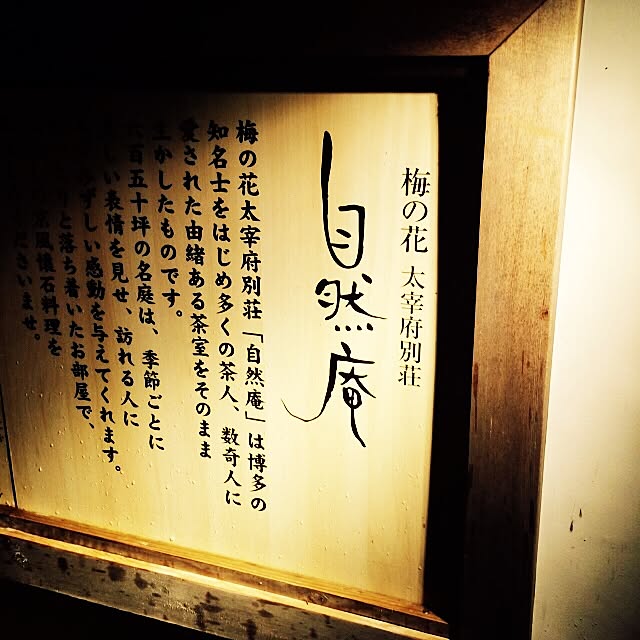 梅の花 太宰府別荘
自然庵
梅の花太宰府別荘「自然庵」は博多の
知名士をはじめ多くの茶人、数奇人に
愛された由緒ある茶室をそのまま
生かしたものです。
六百五十坪の名庭は、季節ごとに
しい表情を見せ、訪れる人に
ずしい感動を与えてくれます。
りと落ち着いたお部屋で、
風懐石料理を
ださいませ。